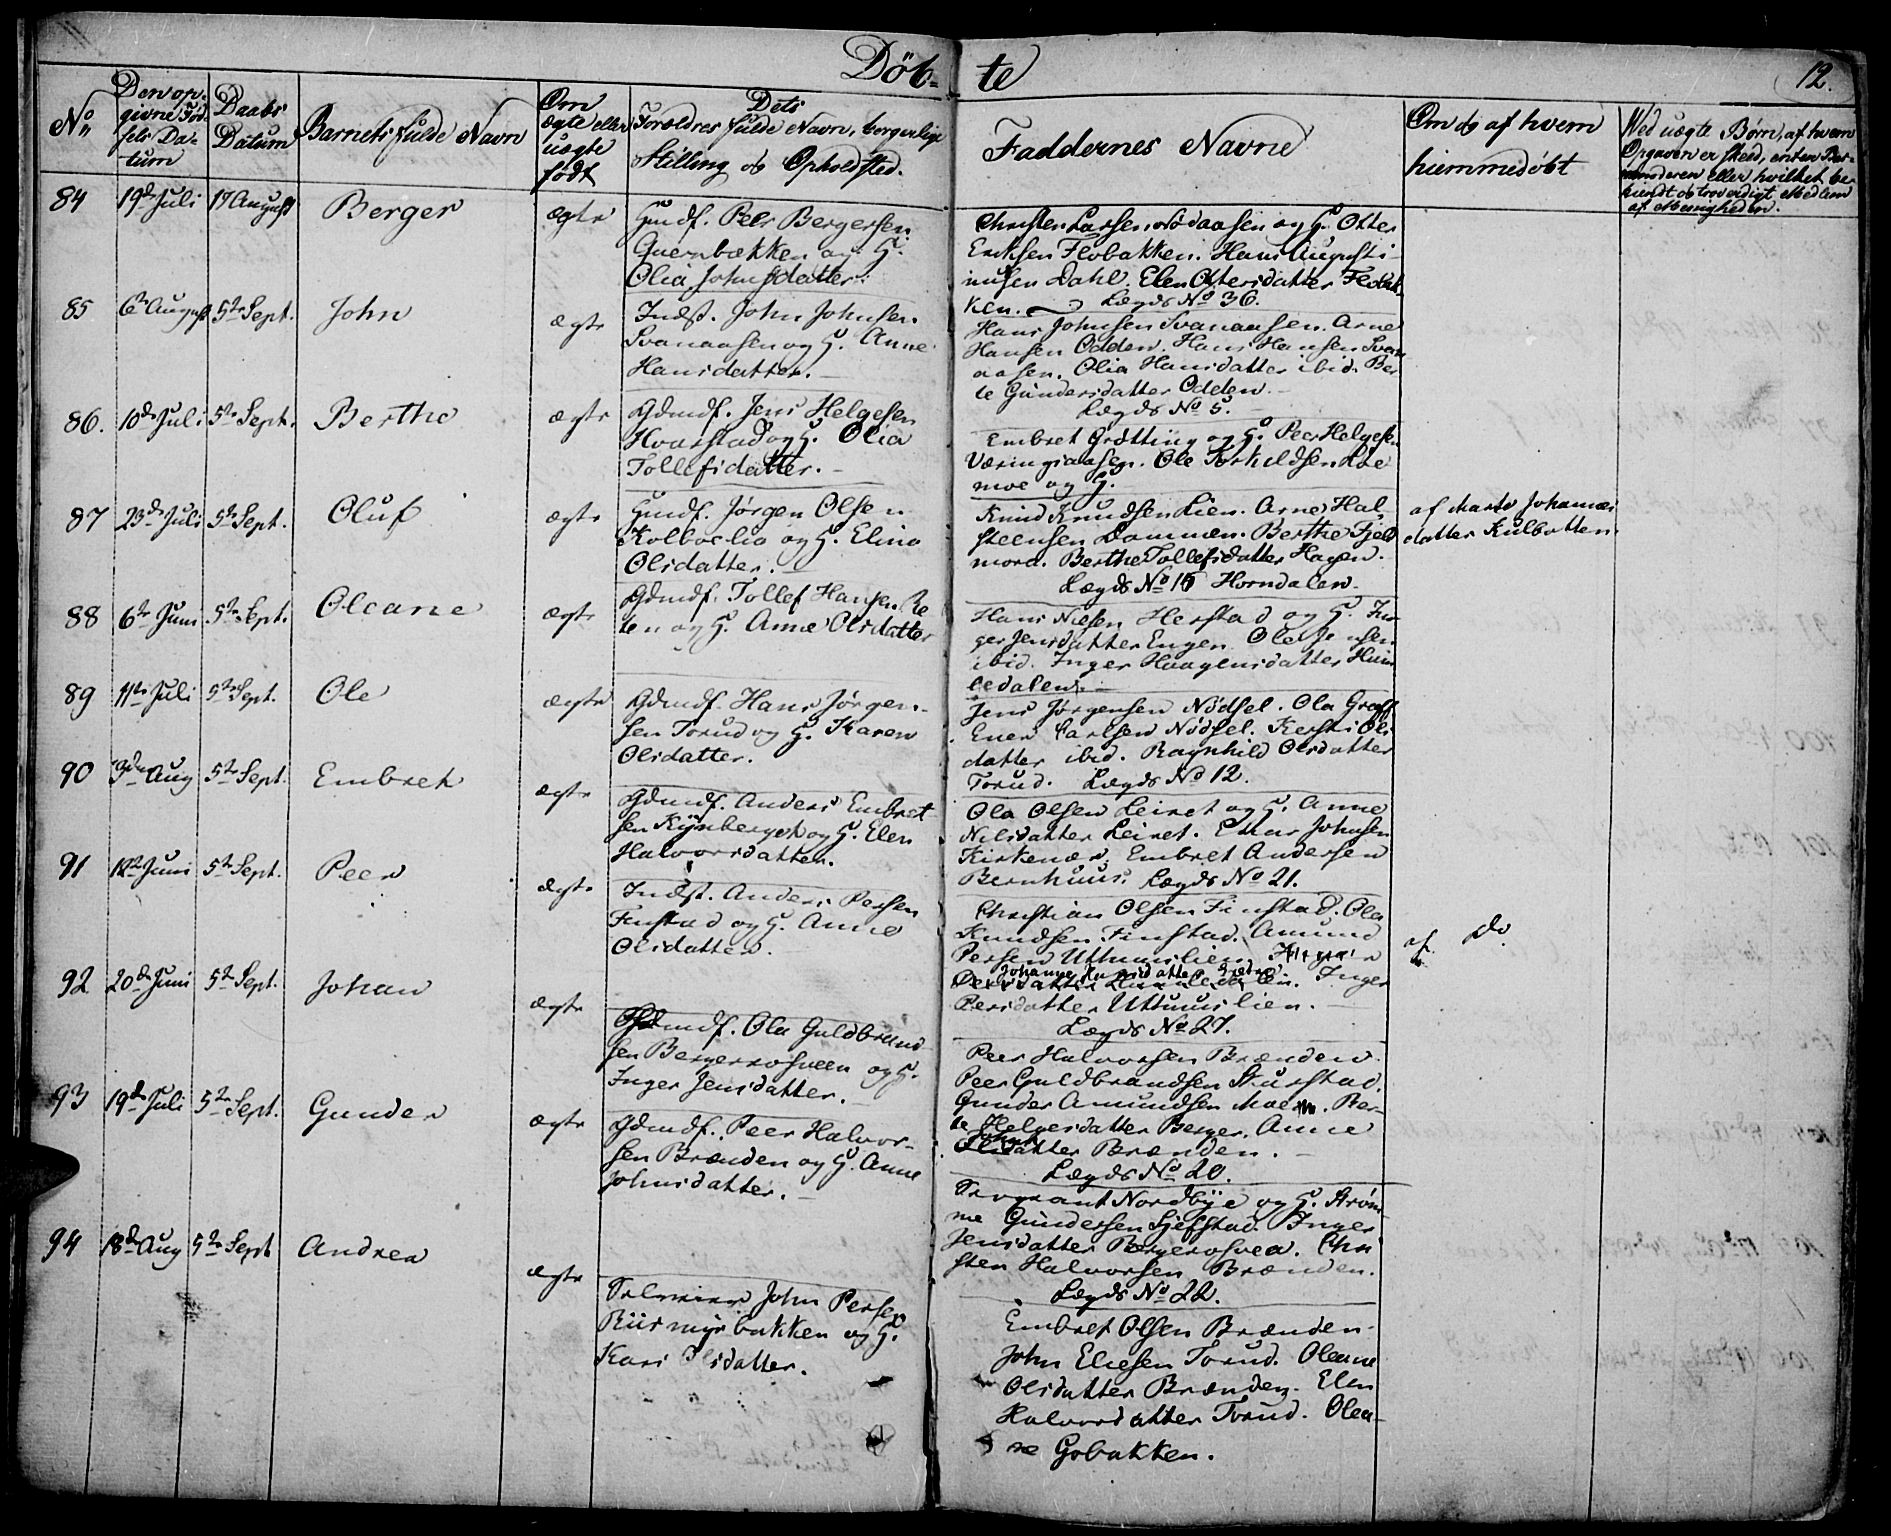 Döb-te
12.
No
Den op-
givne Fød-
sels Da-
tum
Daabs
Datum
Barnets fulde Navn
Om
ægte eller
uægte
født
Dets
Forældres fulde Navn, borgerlige
Stilling og Opholdsted.
Faddernes Navne
Om og af hvem
hiemmedøbt
Ved uægte Børn, af hvem
Opgaven er skeed, enten Bar-
nemoderen eller hvilket be-
kiendt og troverdigt Medlem
af Menigheden.
84 19de Juli 19 August Berger ægte
Gmdf. Peer Bergersen
Quernbækken og H.
Olia Johnsdatter.
Christen Larsen Nødaasen og H. Otter
Eriksen Flobakken. Hans Augusti-
nusen Dahl. Elen Ottersdatter Flobak-
ken.
Lægds No 36.
85 6te August 5te Sept. John ægte
Indst. John Johnsen
Svanaasen og H. Anne
Hansdatter.
Hans Johnsen Svanaasen. Arne
Hansen Odden. Hans Hansen Svan-
aasen. Olia Hansdatter ibid. Ber
te Gundersdatter Odden.
Lægds No 5.
86. 10de Juli 5te Sept. Berthe ægte
Gdmdf. Jens Helgesen
Hvarstad og H. Olia
Tollefsdatter.
Embret Grøtting og H. Peer Helgesen
Væringsaasen. Ole Torkildsen Løe
moe og H.
87 23de Juli 5te Sept. Oluf ægte
Gmdf. Jørgen Olsen
Kolboelia og H. Elina
Olsdatter.
Knud Knudsen Lien. Arne Hal-
steensen Dammen. Berthe Fjeld
mora. Berthe Tollefsdatter Hagen.
Lægds No 16 Horndalen.
af Marte Johannes
datter Kulbotten.
88 6te Juni 5te Sept. Oleane ægte
Gdmdf. Tollef Hansen Re
ten og H. Anne Olsdatter
Hans Nilsen Herstad og H. In-
ger Jensdatter Engen Ole Jensen
ibid. Inger Haagensdatter Hum
ledalen.
89 11te Juli 5te Sept. Ole ægte
Gdmdf. Hans Jørgen-
sen Torud og H. Karen
Olsdatter.
Jens Jørgensen Nødsel. Ola Graff
Ener Carlsen Nødsel. Kersti Ols
datter ibid. Ragnhild Olsdatter
Torud. Lægds No 12.
90 3de Aug 5te Sept. Embret ægte
Gdmdf. Anders Embret
sen Kynberget og H. Elen
Halvorsdatter.
Ola Olsen Leiret og H. Anne
Nilsdatter Leiret. Enar Johnsen
Kirkenær. Embret Andersen
Bernhuus. Lægds No 21.
91 12te Juni 5te Sept. Peer ægte
Indst. Anders Persen
Finstad og H. Anne
Olsdatter.
Christian Olsen Finstad. Ola
Knudsen Finstad. Amund
Persen Uthuuslien.
Inger
Persdatter Uthuuslien.
Lægds No 27.
af do
92 20de Juni 5te Sept. Johan ægte
Gdmdf. Ola Guldbrand
sen Bergerosveen og H.
Inger Jensdatter.
Peer Halvorsen Brænden
Peer Guldbrandsen Skurstad.
Gunder Amundsen Moe. Ber-
te Helgesdatter Berger. Anne
Johns
datter Brænden.
Lægds No 20.
93 19de Juli 5te Sept. Gunder ægte
Gdmdf. Peer Halvor-
sen Brænden og H. Anne
Johnsdatter.
Sergeant Nordbye og H. Strøm-
me Gundersen Sjefstad. Inger
Jensdatter Bergerosvea. Chri
sten Halvorsen Brænden.
Lægds No 22.
94 18de Aug 5te Sept Andrea ægte
Selveier John Persen
Riismyrbakken og H.
Kari Olsdatter.
Embret Olsen Brænden
John Eliesen Torud. Oleane
Olsdatter Brænden. Elen
Halvorsdatter Torud. Olea-
ne Gobakken.